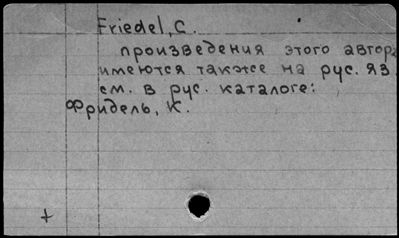 Friedel, C.
произведения этого автора
имеются также на рус. яз.
см. в рус. каталоге:
Фридель, К.
+